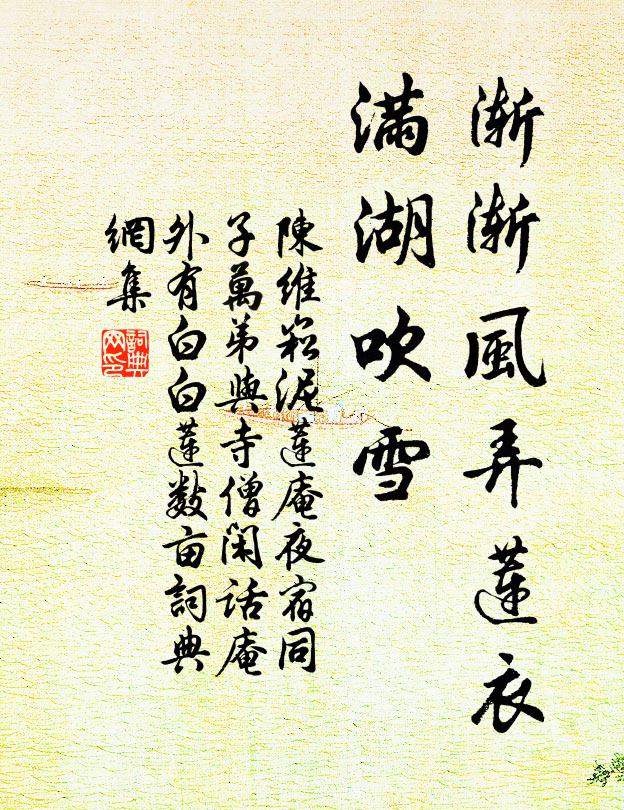 渐渐風弄蓮衣
滿湖吹雪
陳維崧泥蓮庵夜宿同
子萬弟與寺僧閑話庵
外有白白蓮數亩詞典
網集
詞典
网印